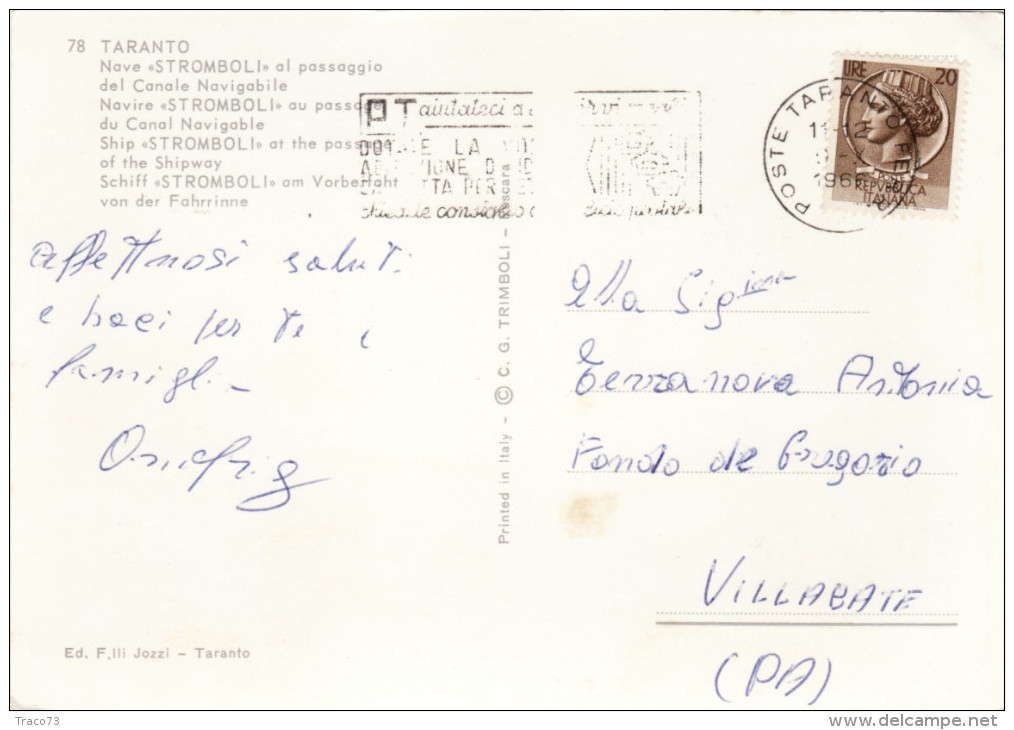 78 TARANTO
Nave «STROMBOLI» al passaggio
del Canale Navigabile
Navire «STROMBOLI» au passage
du Canal Navigable
Ship «STROMBOLI» at the passage
of the Shipway
Schiff «STROMBOLI» am Vorberfaht
von der Fahrrinne
PT aiutateci a
LA
PER
POSTE TARANTO
196
LIRE 20
REPVBBLICA
ITALIANA
affettuosi saluti
e baci per te e
famiglia
Printed in Italy - © C. G. TRIMBOLI - Pescara
Alla Sig
Terranova Antonia
Fondo de Gregorio
VILLABATE
(PA)
Ed. F.lli Jozzi - Taranto
Traco73
www.delcampe.net